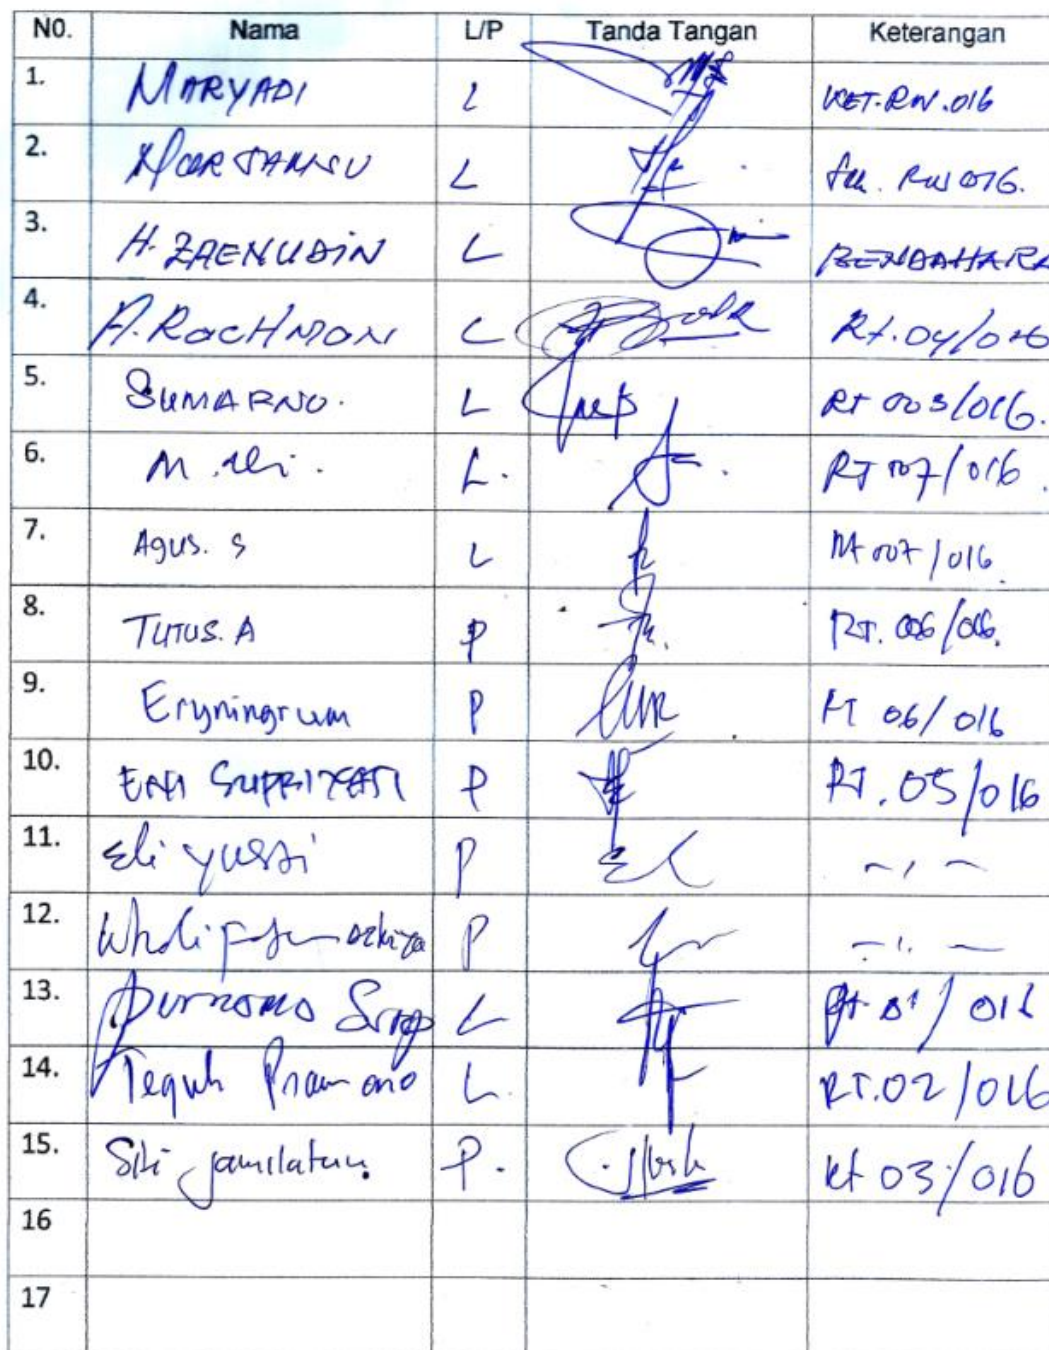 N0. Nama L/P Tanda Tangan Keterangan
1. MARYADI L KET.RW.016
2. L RW 016.
3. H. ZAENUDIN L BENDAHARA
4. A. ROCHMAN L Rt.04/016
5. SUMARNO. L RT 003/016.
6. M. Ali. L. RT 007/016.
7. Agus. S L Rt 007/016
8. TUTUS. A P RT. 006/016.
9. Eryningrum P RT 06/016
10. ENI SUPRIYATI P RT. 05/016
11. Eli yussi P - , -
12. P - ,, -
13. Purnomo L Rt 01/016
14. Teguh Pramono L. RT.02/016
15. Siti Jamilatun. P. Rt 03/016
16
17